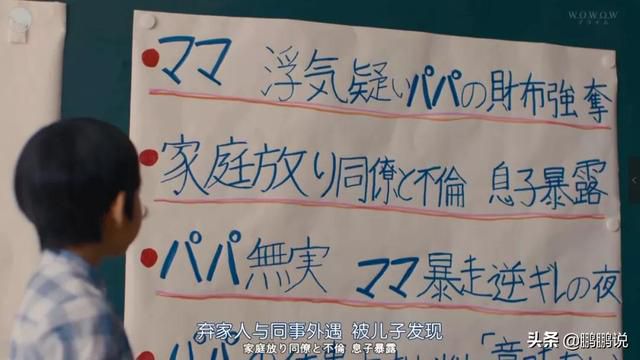 WOWOW
プライム
ママ 浮気疑いパパの財布強奪
家庭放り同僚と不倫 息子暴露
パパ無実 ママ暴走逆ギレの夜
弃家人与同事外遇 被儿子发现
家庭放り同僚と不倫 息子暴露
头条 @鹏鹏说